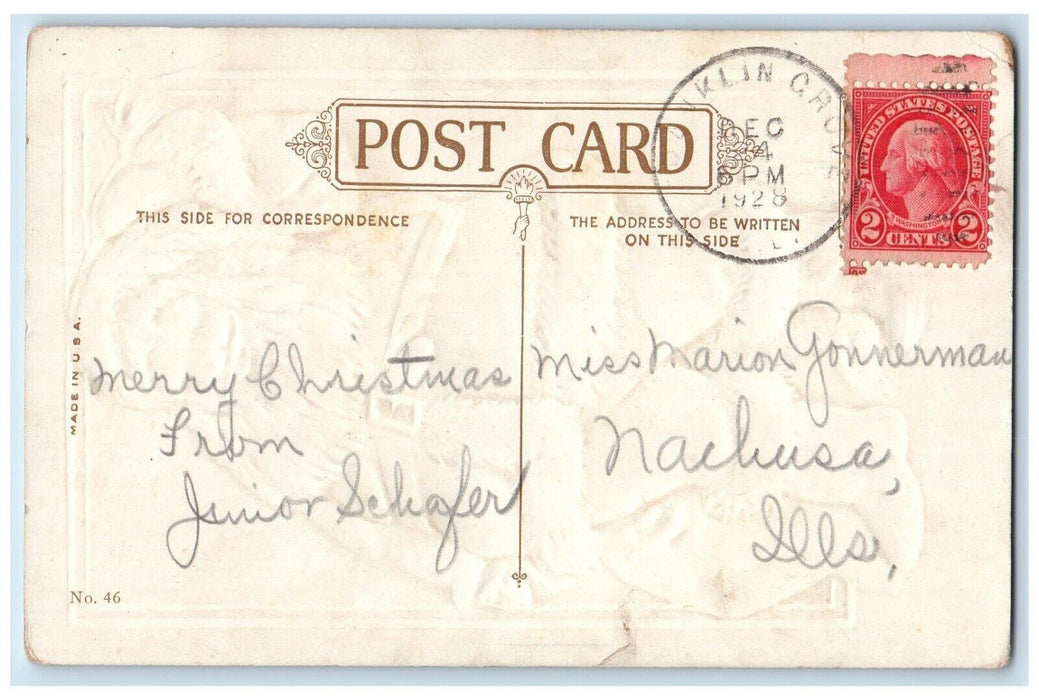 POST CARD
THIS SIDE FOR CORRESPONDENCE
THE ADDRESS TO BE WRITTEN
ON THIS SIDE
KLIN GROVE
DEC
4
PM
1928
UNITED STATES POSTAGE
WASHINGTON
2 CENTS 2
MADE IN U.S.A.
Merry Christmas
From
Junior Schafer
Miss Marion Gonnerman
Nachusa,
Ills,
No. 46